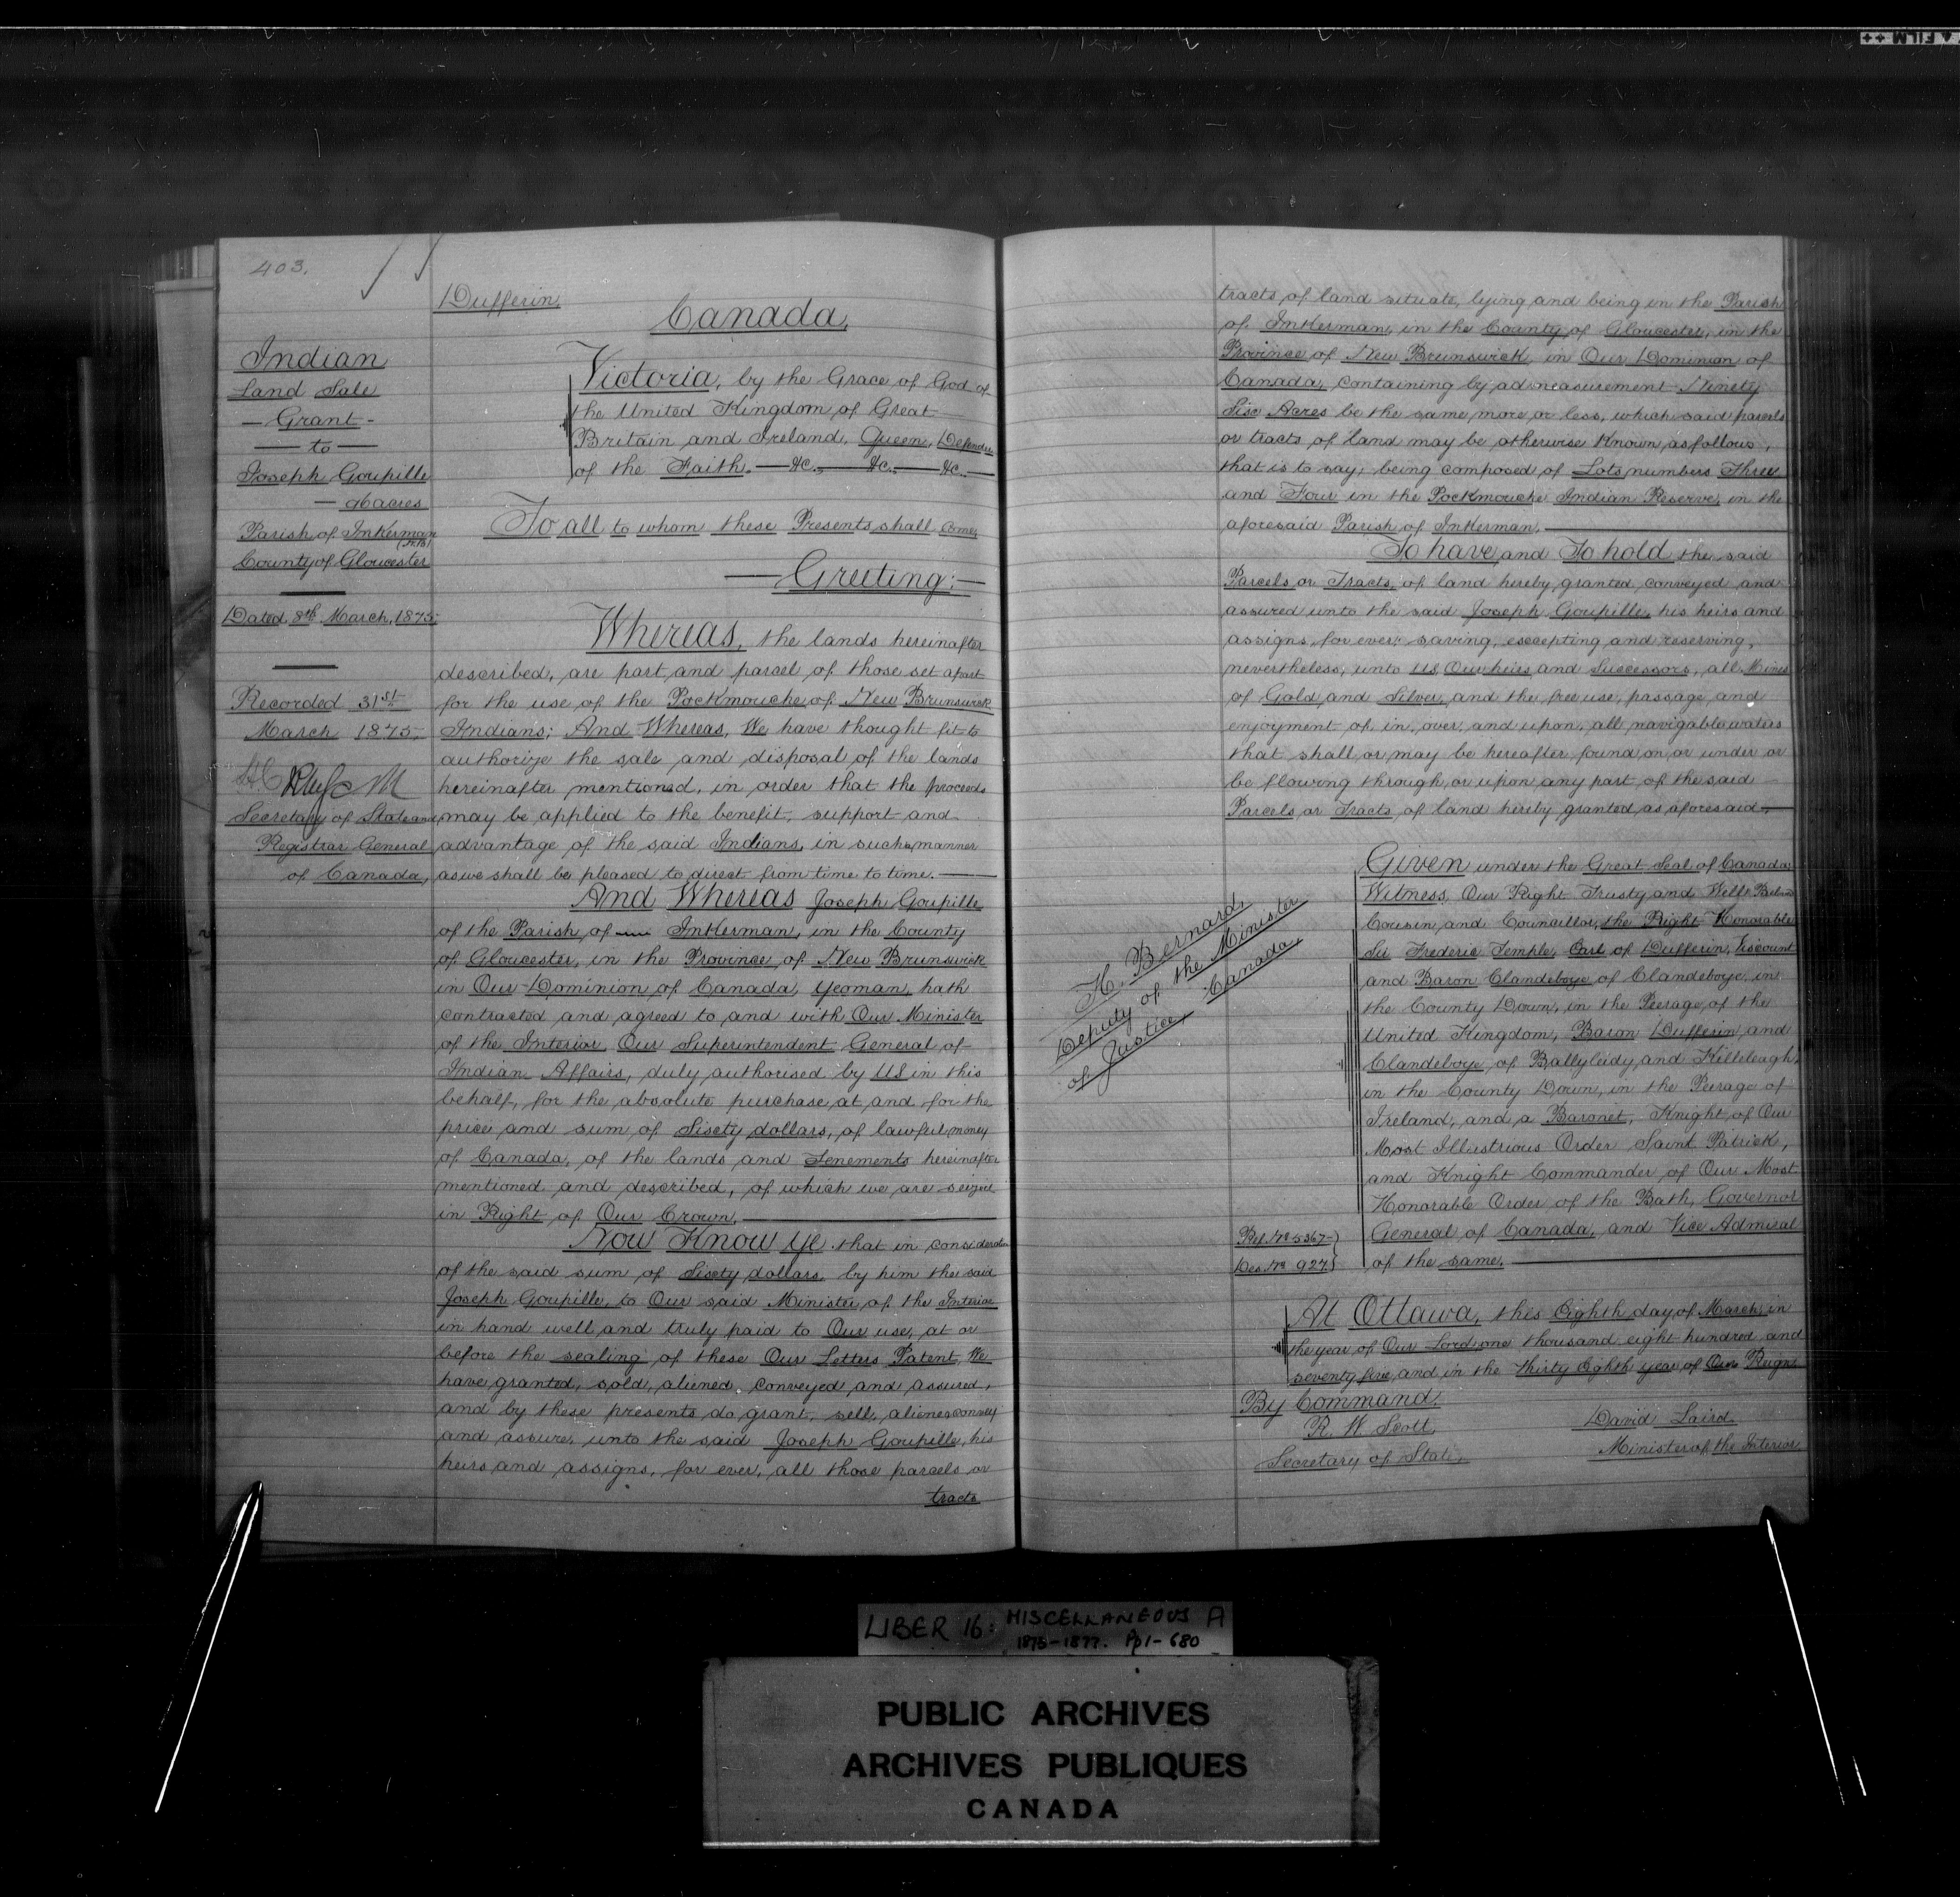 403.
Indian
Land Sale
— Grant -
— to —
Joseph Goupille
— 96 acres
Parish of Inkerman
(N.B.)
County of Gloucester
Dated 8th March, 1875
Recorded 31st
March 1875
Secretary of State and
Registrar General
of Canada,
Dufferin.
Canada,
Victoria, by the Grace of God of
the United Kingdom of Great
Britain and Ireland, Queen, Defender
of the Faith. — &c. — &c. — &c. —
To all to whom these Presents shall come,
— Greeting: —
Whereas, the lands hereinafter
described, are part and parcel of those set apart
for the use of the Pockmouche of New Brunswick
Indians; And Whereas, We have thought fit to
authorize the sale and disposal of the lands
hereinafter mentioned, in order that the proceeds
may be applied to the benefit, support and
advantage of the said Indians, in such manner
as we shall be pleased to direct from time to time. —
And Whereas Joseph Goupille
of the Parish of Inkerman, in the County
of Gloucester, in the Province of New Brunswick
in Our Dominion of Canada, yeoman, hath
contracted and agreed to and with Our Minister
of the Interior Our Superintendent General of
Indian Affairs, duly authorised by Us in this
behalf, for the absolute purchase at and for the
price and sum of Sixty dollars, of lawful money
of Canada, of the lands and Tenements hereinafter
mentioned and described, of which we are seized
in Right of Our Crown. —
Now Know Ye that in consideration
of the said sum of Sixty dollars, by him the said
Joseph Goupille, to Our said Minister of the Interior
in hand well and truly paid to Our use, at or
before the sealing of these Our Letters Patent, We
have granted, sold, aliened, conveyed and assured,
and by these presents do grant, sell, alien, convey
and assure, unto the said Joseph Goupille, his
heirs and assigns, for ever, all those parcels or
tracts
tracts of land situate, lying and being in the Parish
of Inkerman, in the County of Gloucester, in the
Province of New Brunswick, in Our Dominion of
Canada, containing by admeasurement Ninety
Six Acres be the same more or less, which said parcels
or tracts of land may be otherwise known as follows,
that is to say; being composed of Lots numbers Three
and Four in the Pockmouche Indian Reserve, in the
aforesaid Parish of Inkerman. —
To have and To hold the said
Parcels or Tracts, of land hereby granted, conveyed and
assured unto the said Joseph Goupille, his heirs and
assigns, for ever; saving, excepting and reserving,
nevertheless, unto Us Our heirs and Successors, all Mines
of Gold and Silver, and the free use, passage and
enjoyment of, in, over, and upon, all navigable waters
that shall or may be hereafter found on or under or
be flowing through, or upon any part of the said
Parcels or Tracts of land hereby granted as aforesaid —
H. Bernard,
Deputy of the Minister
of Justice, Canada,
Given under the Great Seal of Canada:
Witness, Our Right Trusty and Well Beloved
Cousin and Councillor, the Right Honorable
Sir Frederic Temple, Earl of Dufferin, Viscount
and Baron Clandeboye of Clandeboye, in
the County Down, in the Peerage of the
United Kingdom, Baron Dufferin, and
Clandeboye, of Ballyleidy, and Killeleagh,
in the County Down, in the Peerage of
Ireland, and a Baronet, Knight of Our
Most Illustrious Order Saint Patrick,
and Knight Commander of Our Most
Honorable Order of the Bath, Governor
General of Canada, and Vice Admiral
of the same. —
Ref. No 5367
Des. No 927
At Ottawa, this Eighth day of March, in
the year of Our Lord one thousand eight hundred and
seventy five, and in the thirty Eighth year of Our Reign.
By Command.
R. W. Scott,
Secretary of State,
David Laird
Minister of the Interior
LIBER 16: MISCELLANEOUS A
1875-1877. Pp 1-680
PUBLIC ARCHIVES
ARCHIVES PUBLIQUES
CANADA